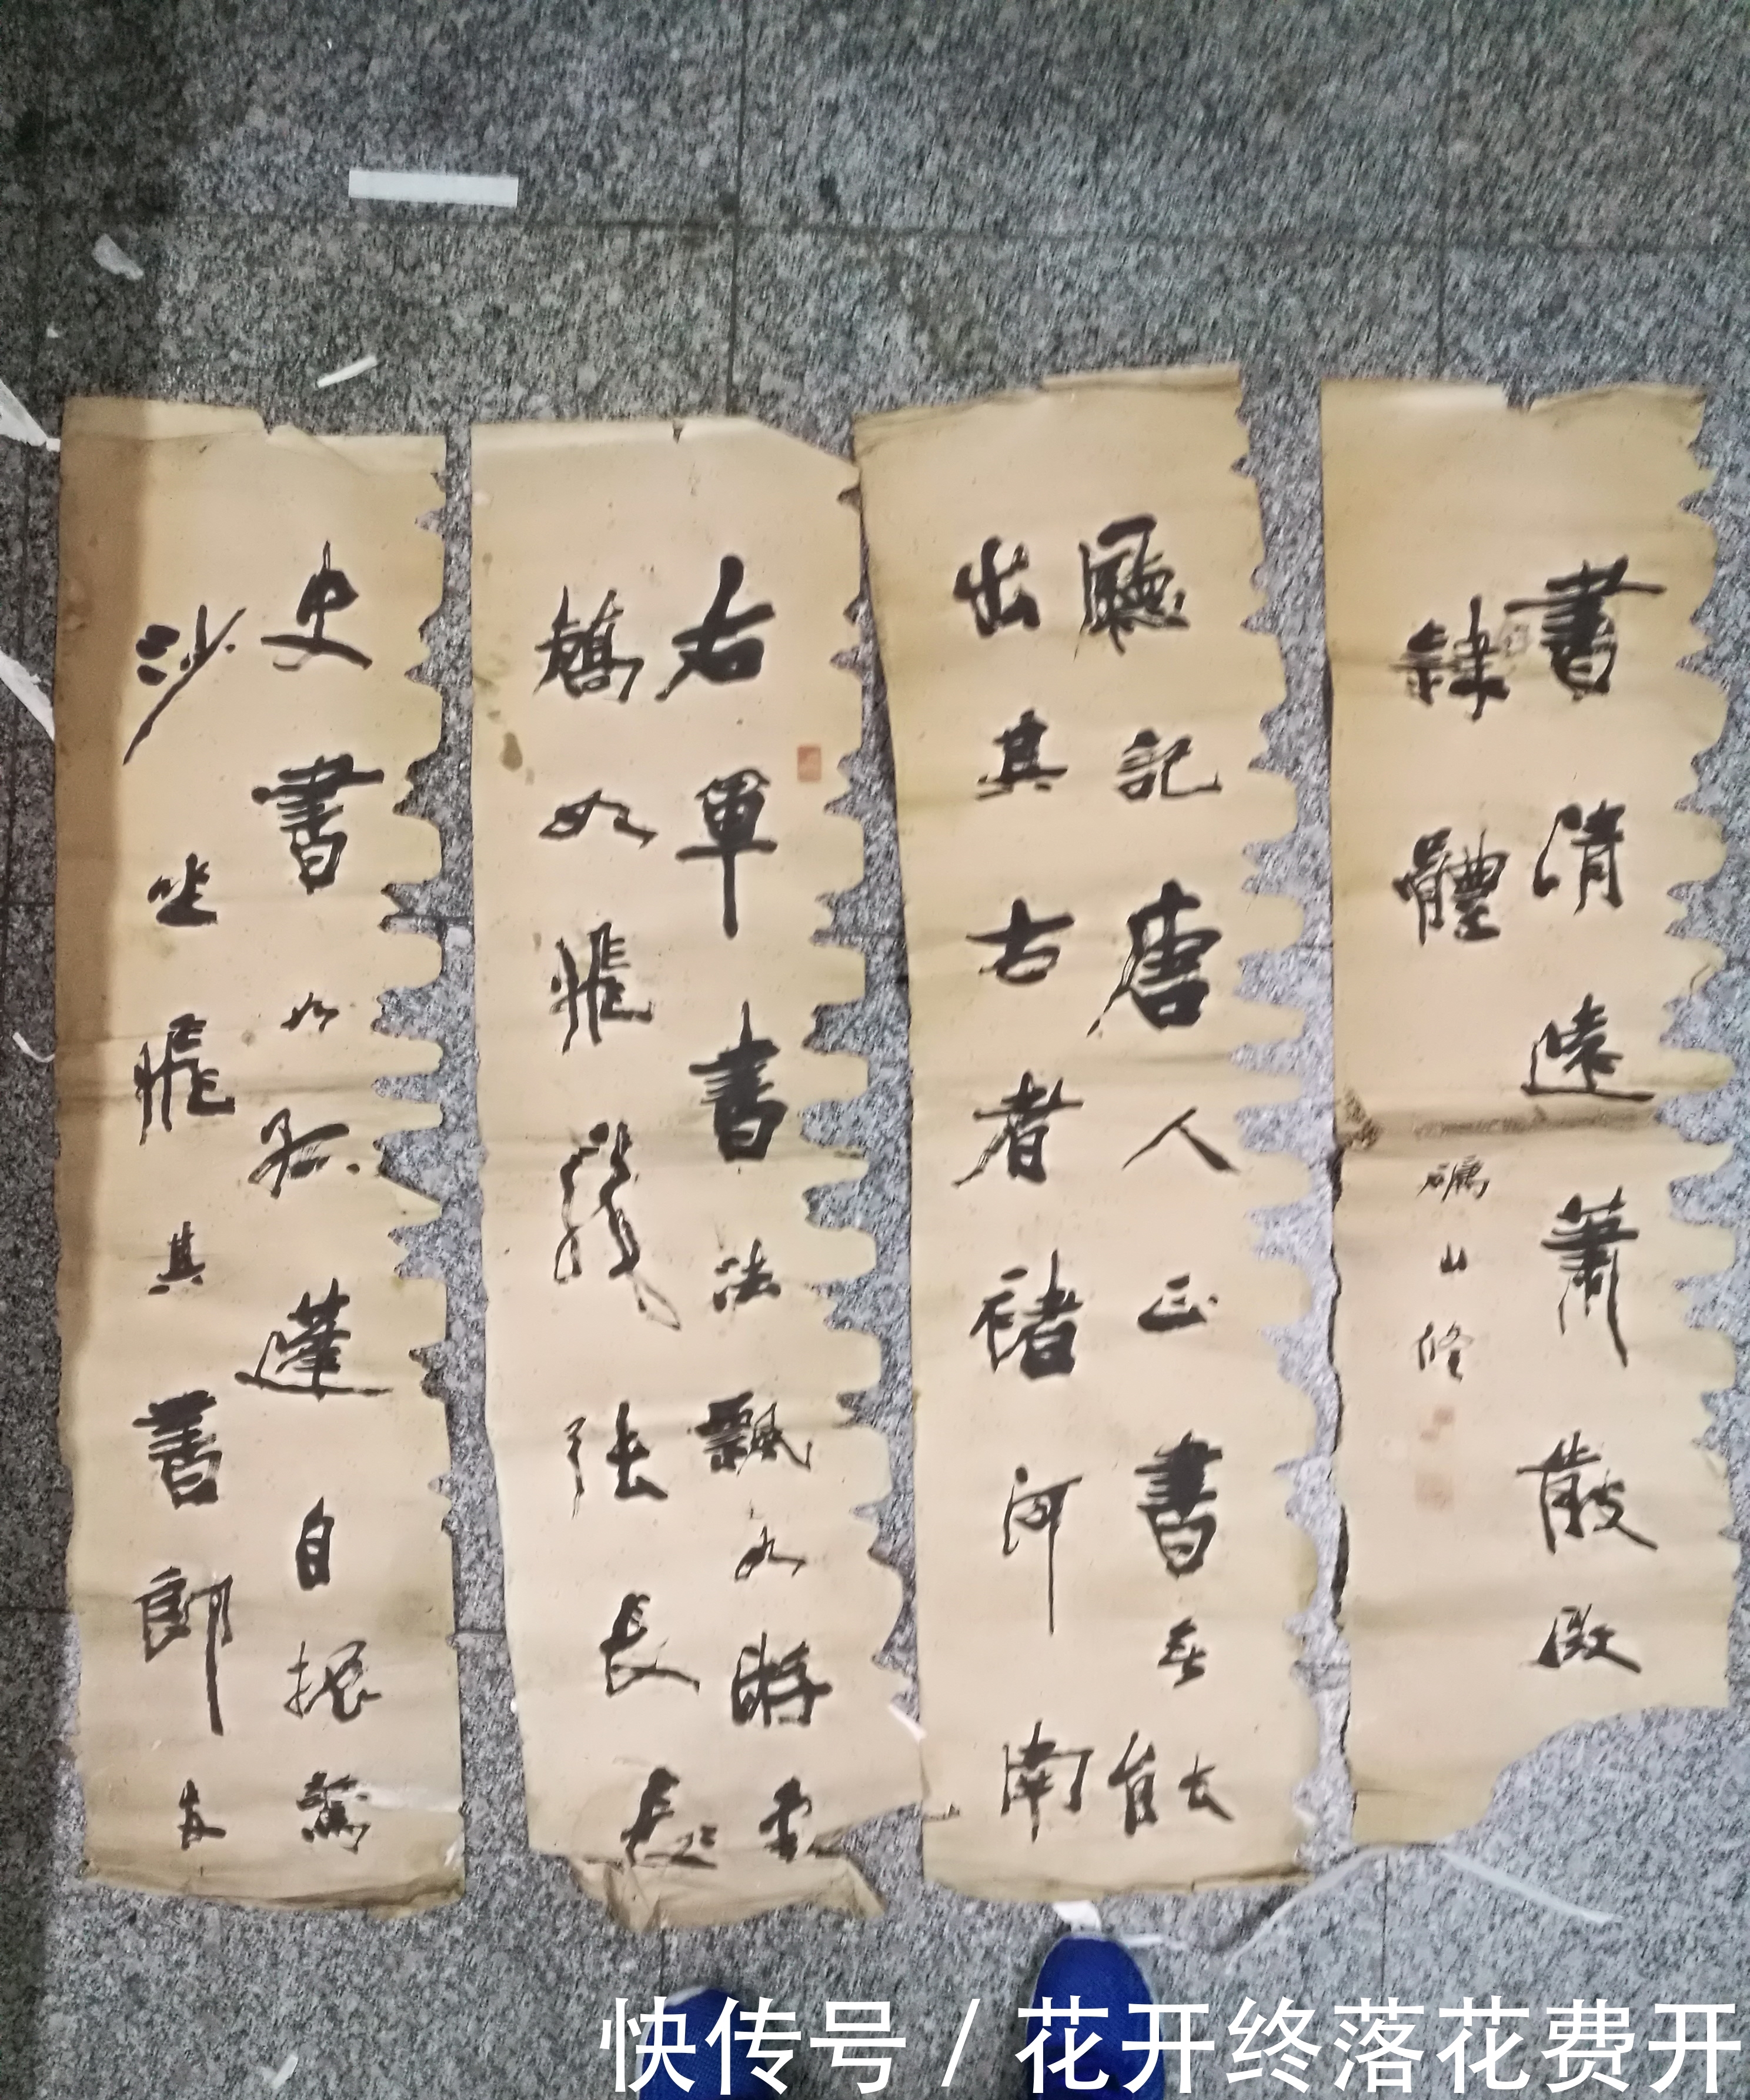 右軍書法飄如游雲
矯如飛龍張長
史書如孤蓬自振驚
沙坐飛其書郎
廳記唐人正書無能
出其右者褚河南
書清遠蕭散
隸體
山修
快传号 / 花开终落花费开